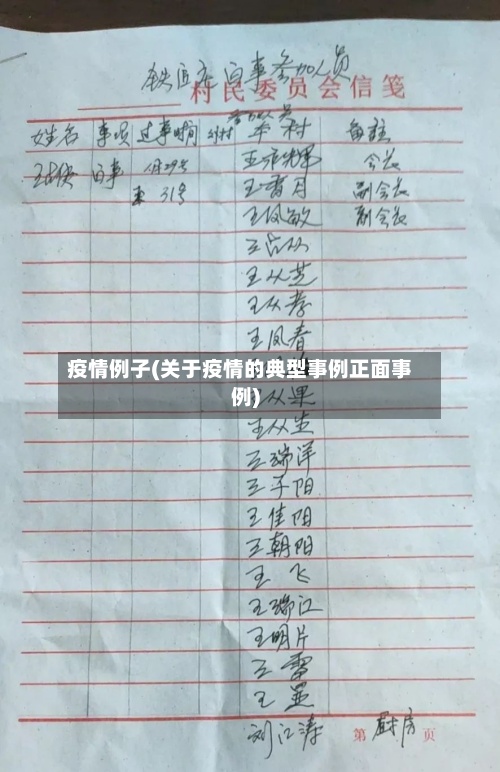 铁匠庄白事参加人员
村民委员会信笺
参加人员
姓名 事项 过事时间 外村 本村 备注
白事 月29号 王维辉 会长
31号 王香月 副会长
王凤敏 副会长
王占从
王从芝
王从孝
王凤春
疫情例子(关于疫情的典型事例正面事
例)
王从果
王从生
王瑞洋
王子阳
王佳阳
王朝阳
王飞
王瑞江
王明片
王雷
王显
刘江涛 厨房
第 页